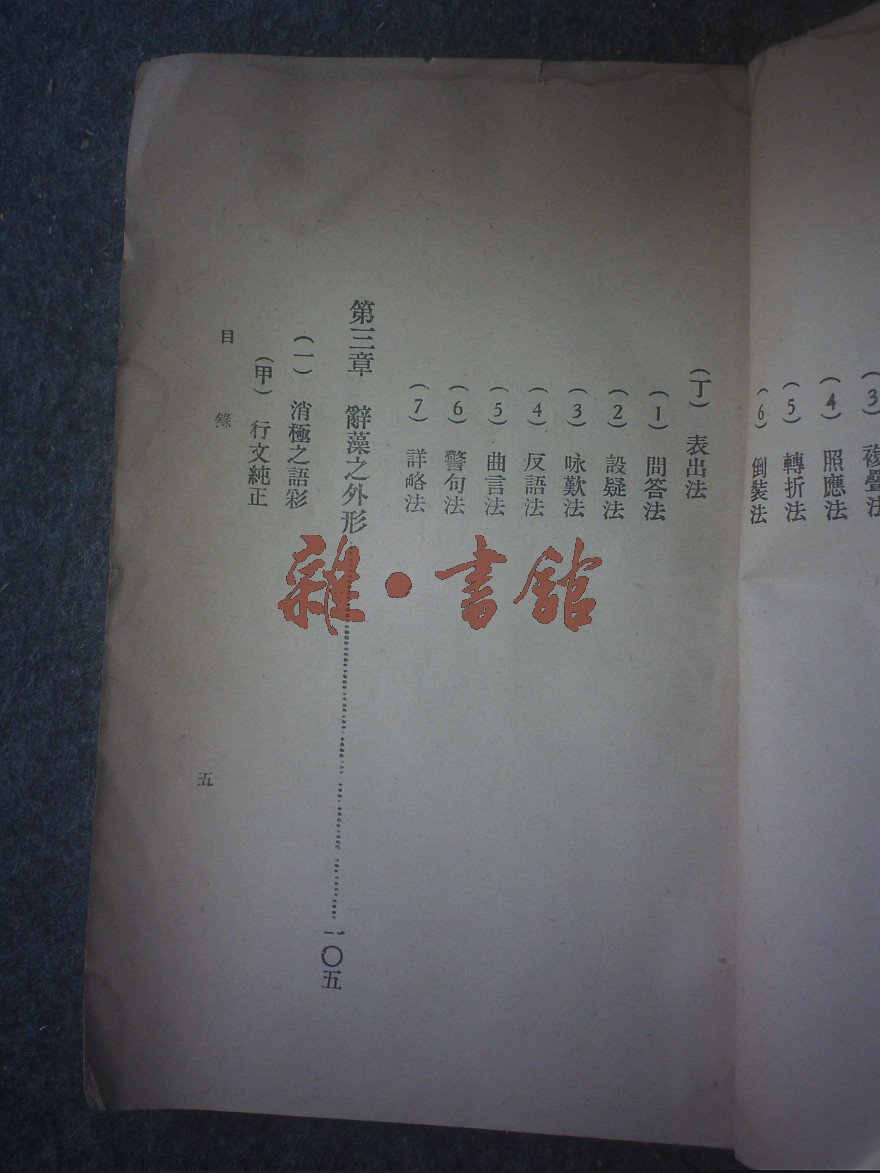 (3) 複疊法
(4) 照應法
(5) 轉折法
(6) 倒裝法
(丁) 表出法
(1) 問答法
(2) 設疑法
(3) 咏歎法
(4) 反語法
(5) 曲言法
(6) 警句法
(7) 詳略法
第三章 辭藻之外形……一〇五
(一) 消極之語彩
(甲) 行文純正
目錄
五
雜·書館